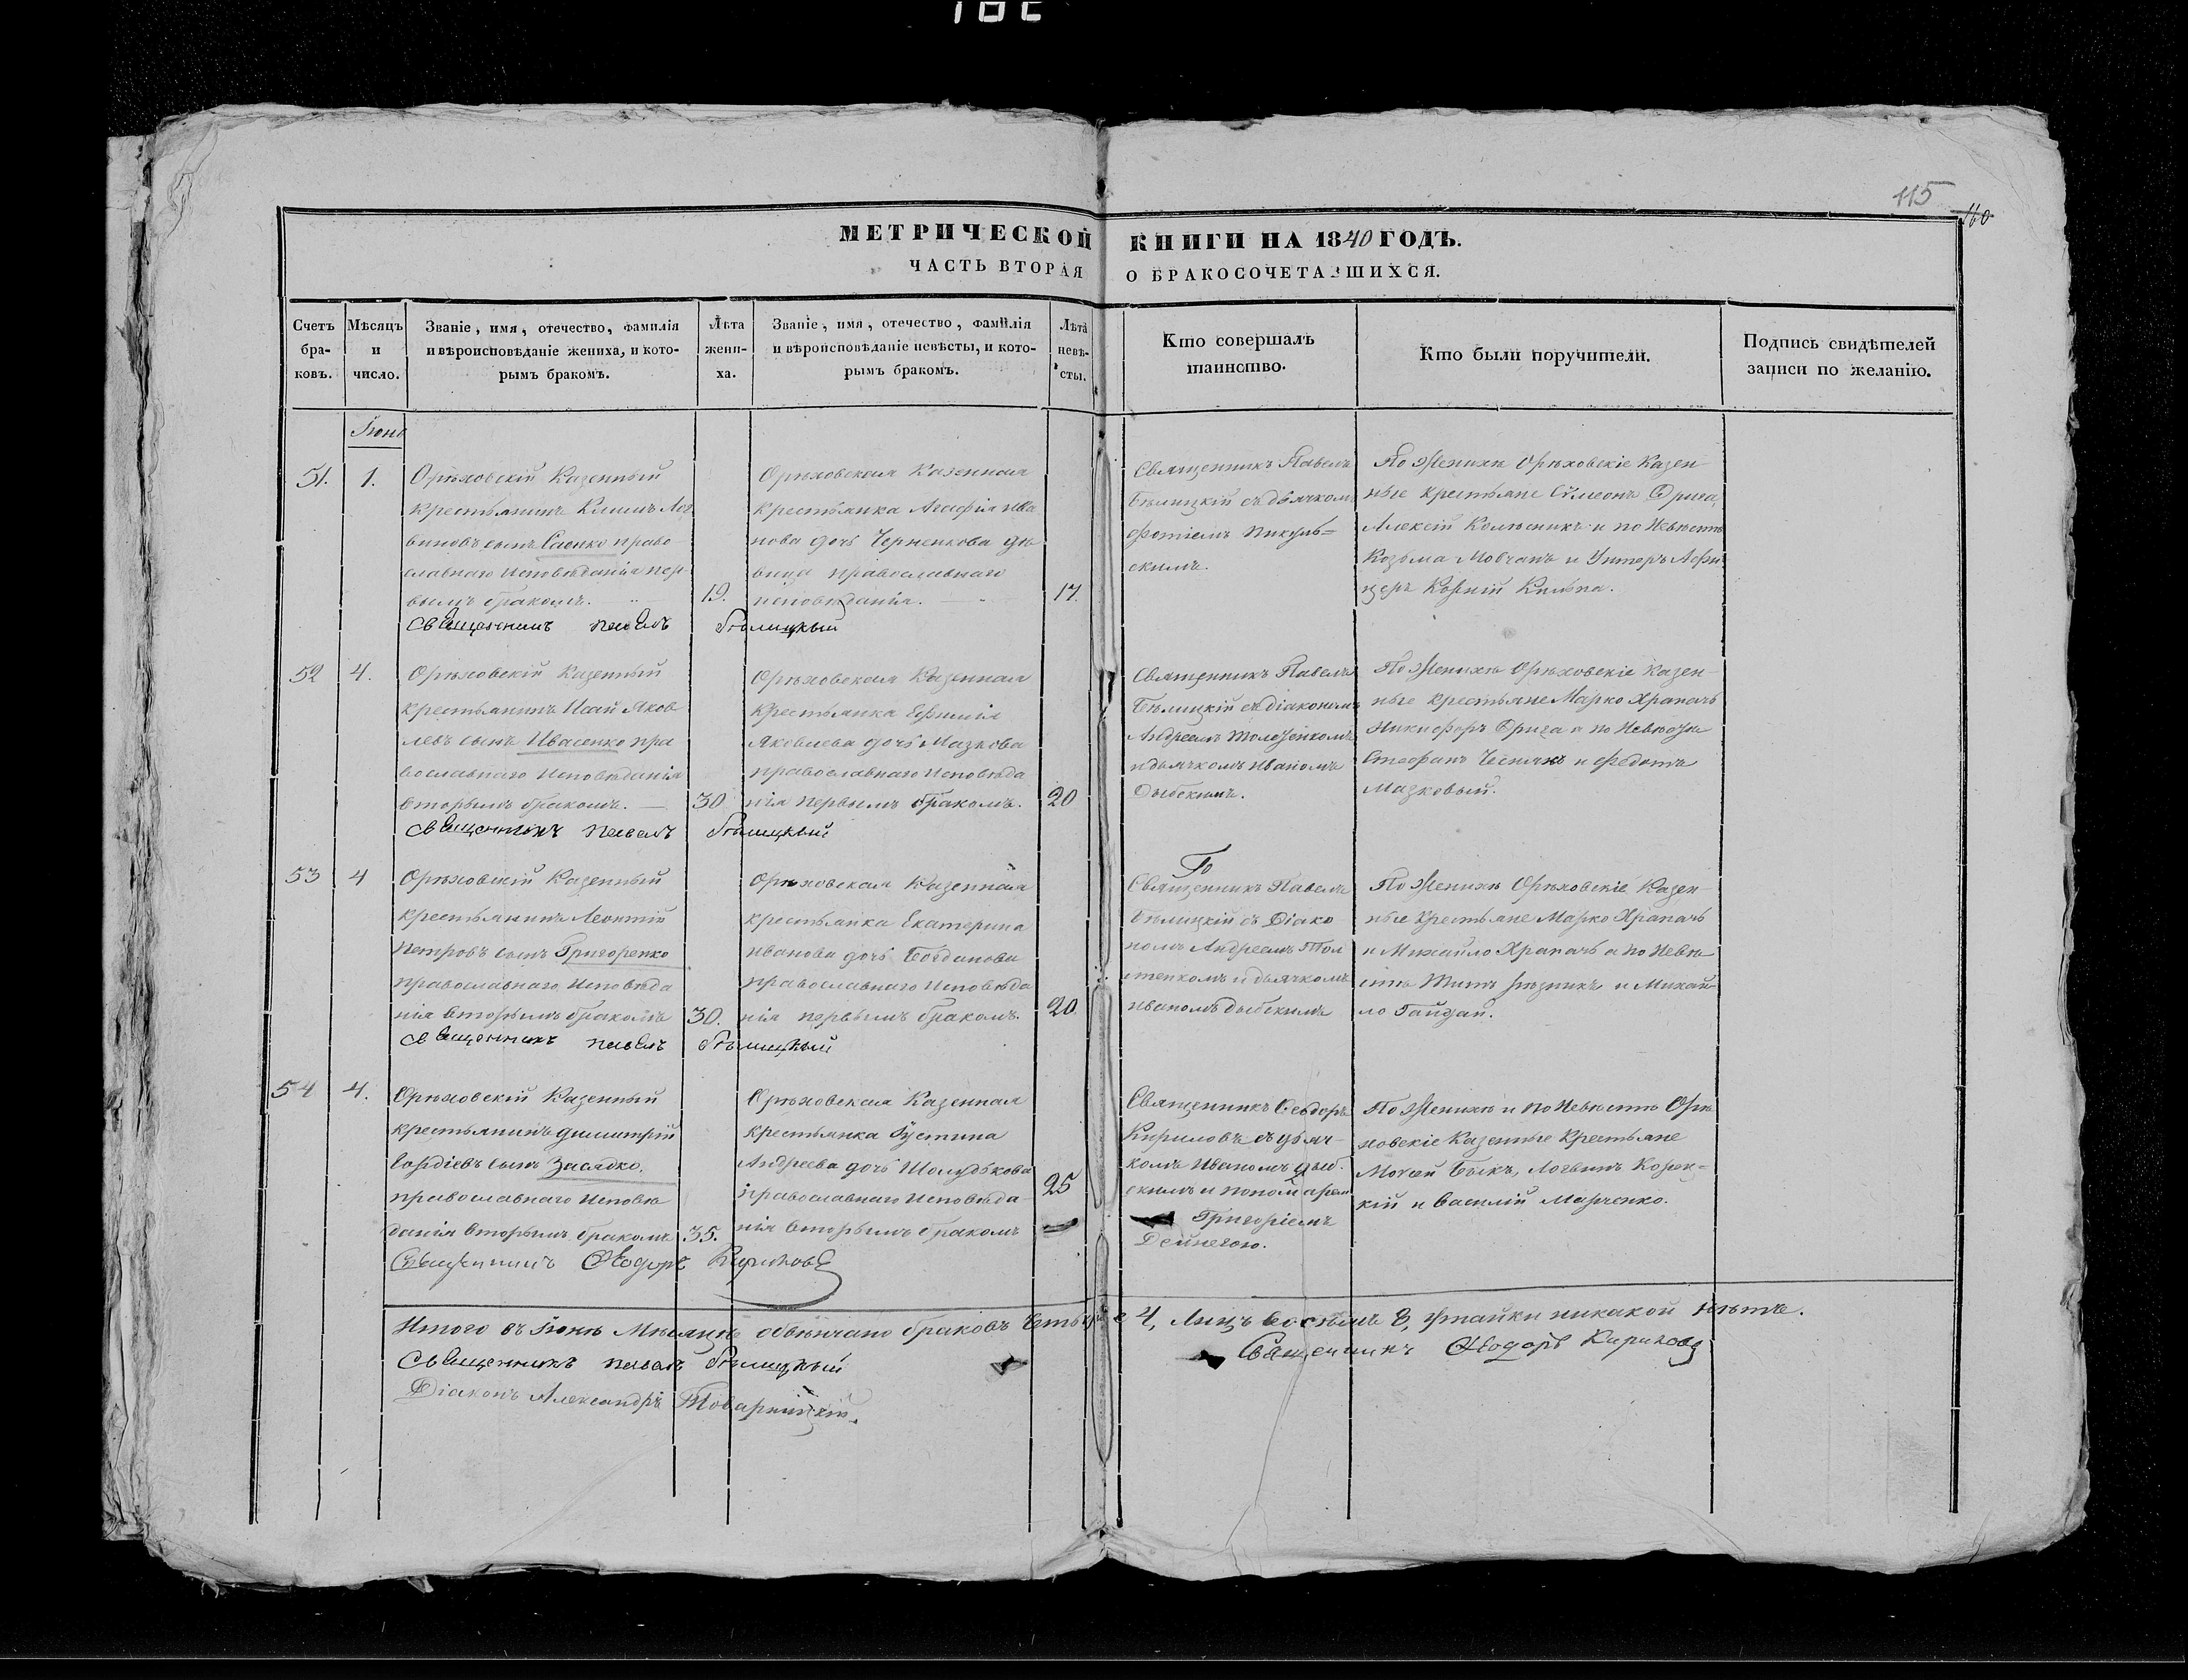 115
160
МЕТРИЧЕСКОЙ КНИГИ НА 1840 ГОДЪ.
ЧАСТЬ ВТОРАЯ О БРАКОСОЧЕТАВШИХСЯ.
Счетъ
бра-
ковъ.
Мѣсяцъ
и
число.
Званіе, имя, отечество, фамилія
и вѣроисповѣданіе жениха, и кото-
рымъ бракомъ.
Лѣта
жени-
ха.
Званіе, имя, отечество, фамилія
и вѣроисповѣданіе невѣсты, и кото-
рымъ бракомъ.
Лѣта
невѣ-
сты.
Кто совершалъ
таинство.
Кто были поручители.
Подпись свидѣтелей
записи по желанію.
Іюнь
51.
1.
Орѣховскій Казенный
крестьянинъ Климъ Лог
виновъ сынъ Саенко право
славнаго исповѣданія пер
вымъ бракомъ.
19.
Орѣховская Казенная
крестьянка Агафія Ива
нова дочь Черненкова дѣ
вица православнаго
исповѣданія.
17.
Священникъ Павелъ
Бѣлицкій съ дьячкомъ
Фотіемъ Никуль=
скимъ.
По Женихѣ Орѣховскіе Казен
ные крестьяне Сѵмеонъ Дрига,
Алексій Колѣсникъ и по Невѣстѣ
Козьма Мовчанъ и Унтеръ Афи
церъ
Священникъ Павелъ Бѣлицкый
52
4.
Орѣховскій Казенный
крестьянинъ Исай Яков
левъ сынъ Ивасенко пра
вославнаго исповѣданія
вторымъ бракомъ.
30
Орѣховская Казенная
крестьянка Ефимія
Яковлева дочь Мазкова
православнаго исповѣда
нія первымъ бракомъ.
20
Священникъ Павелъ
Бѣлицкій съ діакономъ
Андреемъ
и дьячкомъ Иваномъ
По Женихѣ Орѣховскіе Казен
ные крестьяне Марко Храпачь
Никифоръ Дрига а по Невѣстѣ
Стефанъ и Федотъ
Мазковый.
Священникъ Павелъ Бѣлицкый
53
4
Орѣховскій Казенный
крестьянинъ Леонтій
Петровъ сынъ Григоренко
православнаго исповѣда
нія вторымъ бракомъ
30.
Орѣховская Казенная
крестьянка Екатерина
Иванова дочь Богданова
православнаго исповѣда
нія первымъ бракомъ.
20.
Священникъ Павелъ
Бѣлицкій съ Діако
номъ Андреемъ
и дьячкомъ
Иваномъ
По Женихѣ Орѣховскіе Казен
ные крестьяне Марко Храпачь
и Михайло Храпачь а по Невѣ
стѣ Титъ Рѣзникъ и Михай
ло Гайдай.
Священникъ Павелъ Бѣлицкый
54
4.
Орѣховскій Казенный
крестьянинъ Димитрій
сынъ Засядко.
православнаго исповѣ
данія вторымъ бракомъ
35.
Орѣховская Казенная
крестьянка Іустина
Андреева дочь Шолудькова
православнаго исповѣда
нія вторымъ бракомъ
25
Священникъ Ѳеодоръ
Кириловъ съ дьяч-
комъ Иваномъ
скимъ и пономарем
Григоріемъ
Дейнегою.
По Женихѣ и по Невѣстѣ Орѣ
ховскіе Казенные крестьяне
Мосей Быкъ, Логвинъ
и Василій Марченко.
Священникъ Ѳеодоръ Кириловъ
Итого въ Іюнѣ Мѣсяцѣ обвѣнчано браковъ четыре 4, лицъ восѣмь 8, утайки никакой нѣтъ.
Священникъ Павелъ Бѣлицкый
Священникъ Ѳеодоръ Кириловъ
Діаконъ Александръ